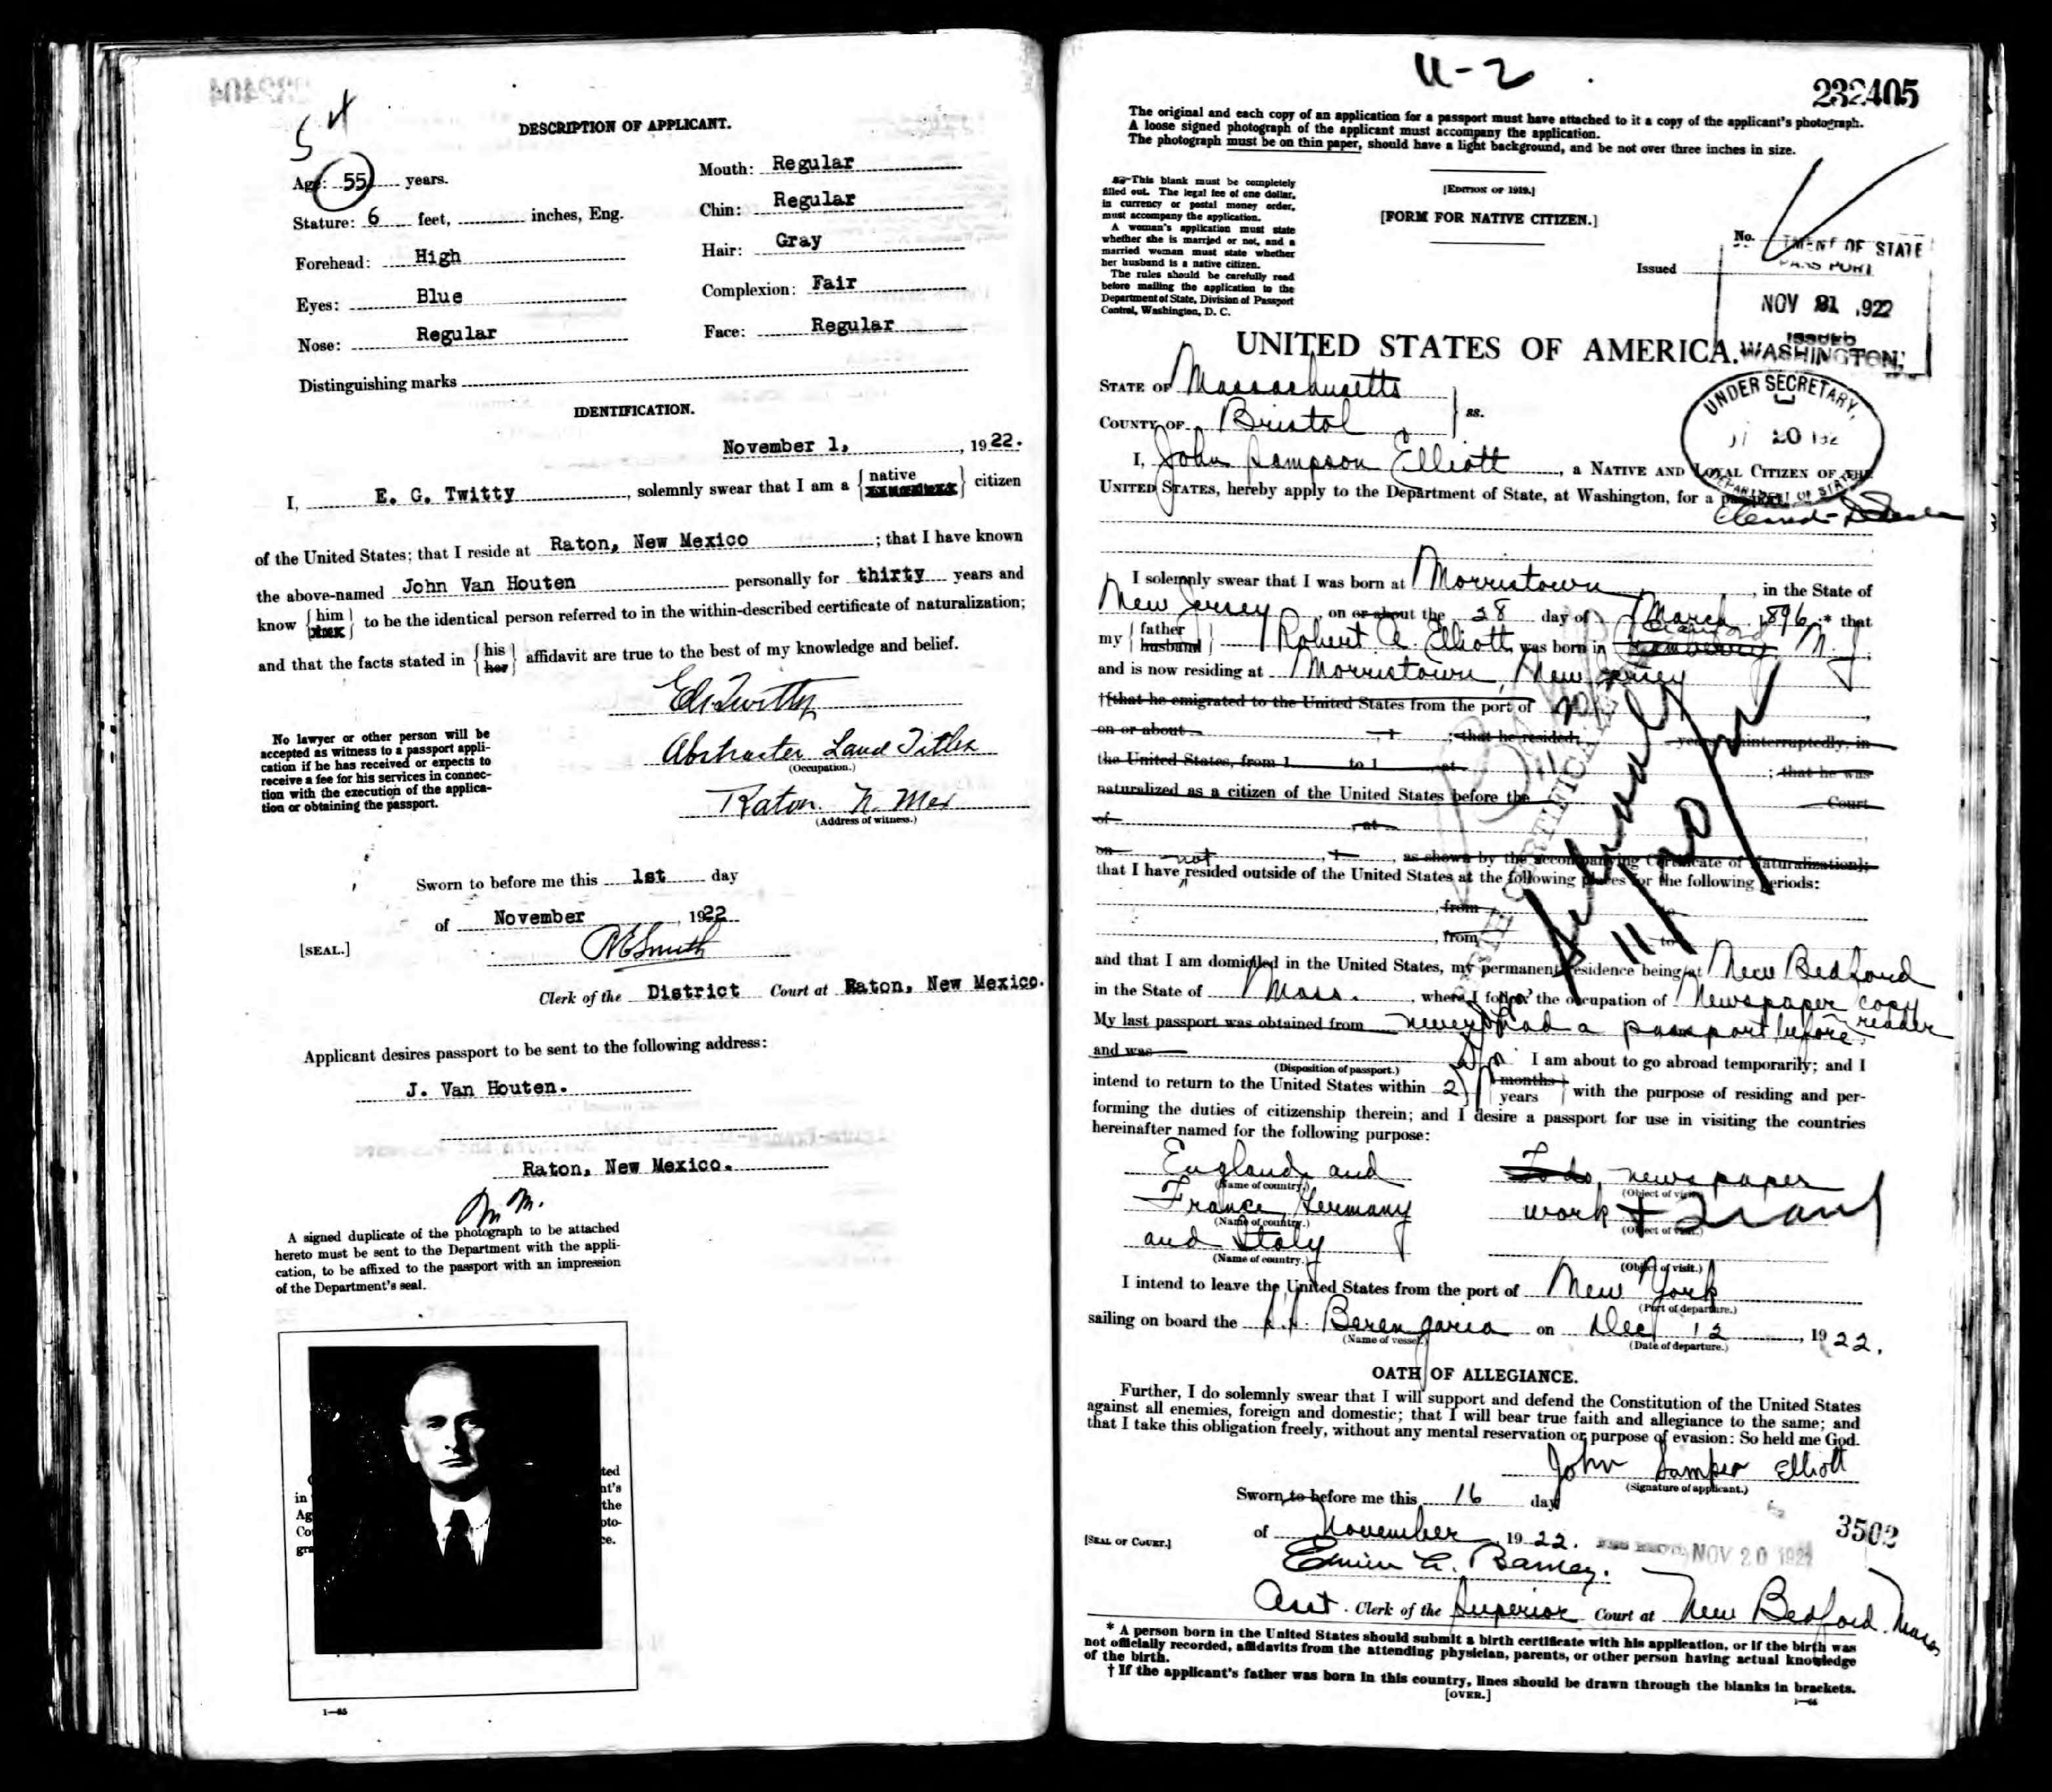 DESCRIPTION OF APPLICANT.
Age: 55 years.
Stature: 6 feet, inches, Eng.
Forehead: High
Eyes: Blue
Nose: Regular
Distinguishing marks
Mouth: Regular
Chin: Regular
Hair: Gray
Complexion: Fair
Face: Regular
IDENTIFICATION.
November 1, , 1922.
I, E. G. Twitty , solemnly swear that I am a { native } citizen
of the United States; that I reside at Raton, New Mexico ; that I have known
the above-named John Van Houten personally for thirty years and
know { him } to be the identical person referred to in the within-described certificate of naturalization;
and that the facts stated in { his her } affidavit are true to the best of my knowledge and belief.
No lawyer or other person will be
accepted as witness to a passport appli-
cation if he has received or expects to
receive a fee for his services in connec-
tion with the execution of the applica-
tion or obtaining the passport.
Abstracter Land Titles
(Occupation.)
Raton. N. Mex
(Address of witness.)
Sworn to before me this 1st day
of November , 1922
[SEAL.]
Smith
Clerk of the District Court at Raton, New Mexico.
Applicant desires passport to be sent to the following address:
J. Van Houten.
Raton, New Mexico.
A signed duplicate of the photograph to be attached
hereto must be sent to the Department with the appli-
cation, to be affixed to the passport with an impression
of the Department's seal.
232405
The original and each copy of an application for a passport must have attached to it a copy of the applicant's photograph.
A loose signed photograph of the applicant must accompany the application.
The photograph must be on thin paper, should have a light background, and be not over three inches in size.
This blank must be completely
filled out. The legal fee of one dollar,
in currency or postal money order,
must accompany the application.
A woman's application must state
whether she is married or not, and a
married woman must state whether
her husband is a native citizen.
The rules should be carefully read
before mailing the application to the
Department of State, Division of Passport
Control, Washington, D. C.
[EDITION OF 1919.]
[FORM FOR NATIVE CITIZEN.]
No.
OF STATE
Issued
NOV 21 1922
ISSUED
WASHINGTON
UNITED STATES OF AMERICA.
UNDER SECRETARY,
20
DEPARTMENT OF STATE
STATE OF Massachusetts
COUNTY OF Bristol } ss.
I, John Sampson Elliott , a NATIVE AND LOYAL CITIZEN OF THE
UNITED STATES, hereby apply to the Department of State, at Washington, for a passport
I solemnly swear that I was born at Morristown , in the State of
New Jersey , on or about the 28 day of March, 1896,* that
my { father husband } Robert A. Elliott was born in N. J.
and is now residing at Morristown, New Jersey
†[that he emigrated to the United States from the port of
on or about , 1 ; that he resided years, uninterruptedly, in
the United States, from 1 to 1 , at ; that he was
naturalized as a citizen of the United States before the Court
of , at ,
on , 1 , as shown by the accompanying Certificate of Naturalization];
that I have not resided outside of the United States at the following places for the following periods:
, from to
, from to
and that I am domiciled in the United States, my permanent residence being at New Bedford
in the State of Mass. , where I follow the occupation of Newspaper copy reader
My last passport was obtained from never had a passport before.
and was
(Disposition of passport.)
I am about to go abroad temporarily; and I
intend to return to the United States within 2 { months years } with the purpose of residing and per-
forming the duties of citizenship therein; and I desire a passport for use in visiting the countries
hereinafter named for the following purpose:
England and To do newspaper
(Name of country.) (Object of visit.)
France, Germany work + Travel
(Name of country.) (Object of visit.)
and Italy
(Name of country.) (Object of visit.)
I intend to leave the United States from the port of New York
(Port of departure.)
sailing on board the S.S. Berengaria on Dec 12 , 1922.
(Name of vessel.) (Date of departure.)
OATH OF ALLEGIANCE.
Further, I do solemnly swear that I will support and defend the Constitution of the United States
against all enemies, foreign and domestic; that I will bear true faith and allegiance to the same; and
that I take this obligation freely, without any mental reservation or purpose of evasion: So held me God.
John Sampson Elliott
(Signature of applicant.)
Sworn to before me this 16 day
of November , 1922.
NOV 20 1922
3502
[SEAL OF COURT.]
Asst. Clerk of the Superior Court at New Bedford. Mass
* A person born in the United States should submit a birth certificate with his application, or if the birth was
not officially recorded, affidavits from the attending physician, parents, or other person having actual knowledge
of the birth.
† If the applicant's father was born in this country, lines should be drawn through the blanks in brackets.
[OVER.]